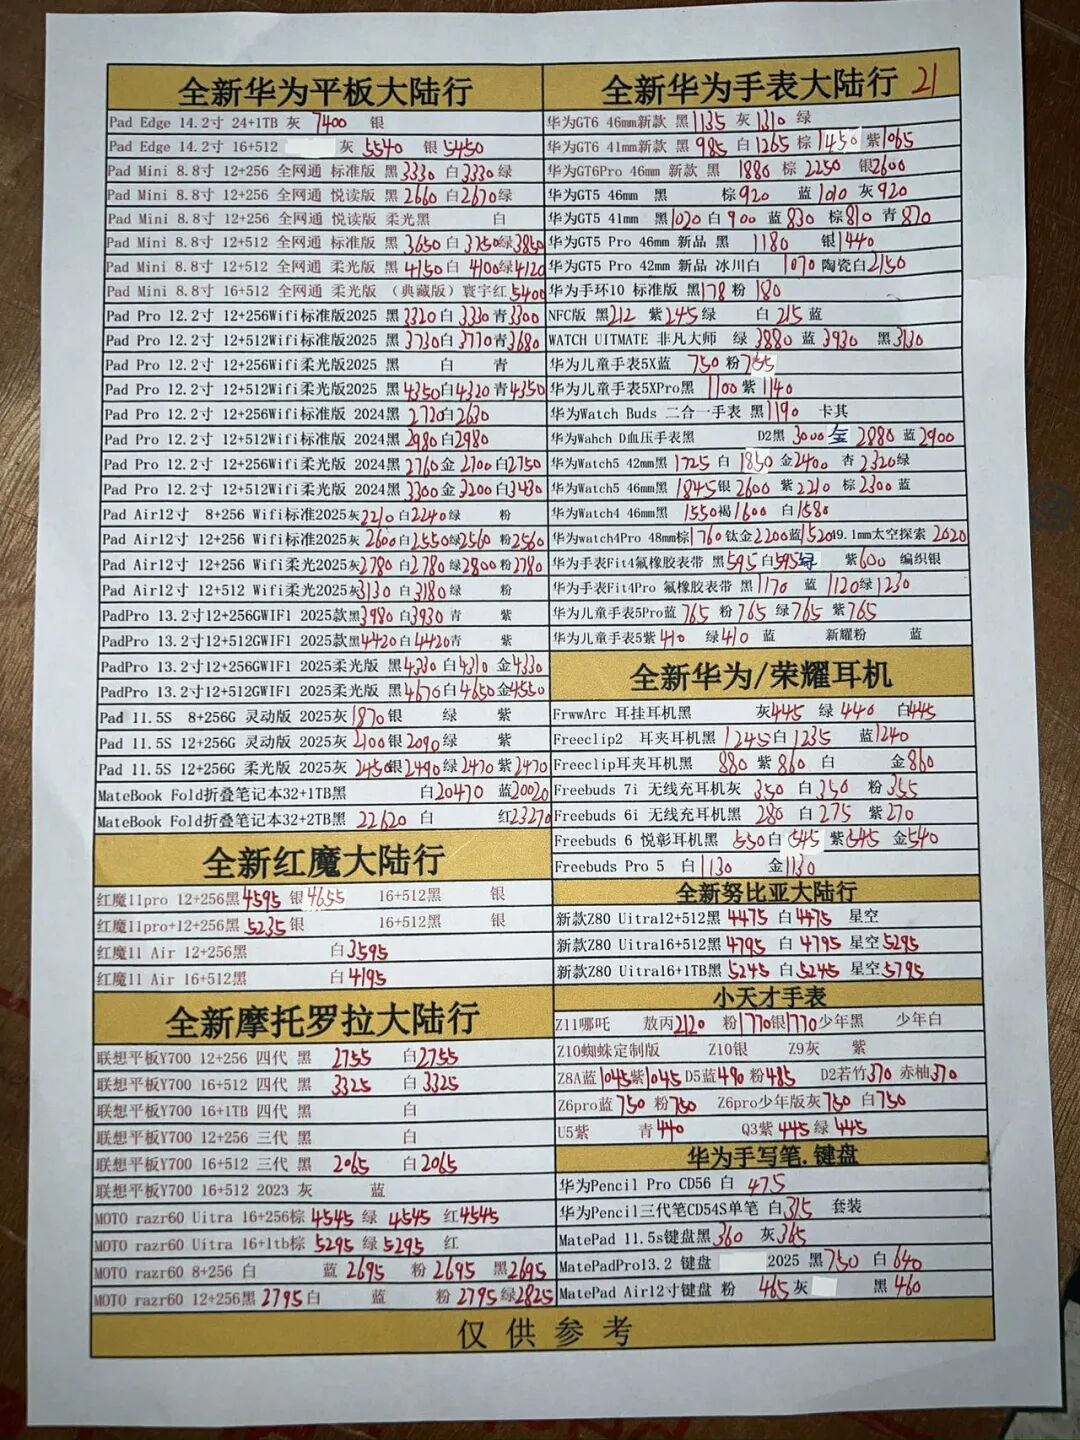 全新华为平板大陆行
Pad Edge 14.2寸 24+1TB 灰 7400 银
Pad Edge 14.2寸 16+512 灰 5540 银 5450
Pad Mini 8.8寸 12+256 全网通 标准版 黑 3330 白 3330 绿
Pad Mini 8.8寸 12+256 全网通 悦读版 黑 2660 白 2670 绿
Pad Mini 8.8寸 12+256 全网通 悦读版 柔光黑 白
Pad Mini 8.8寸 12+512 全网通 标准版 黑 3650 白 3750 绿 3850
Pad Mini 8.8寸 12+512 全网通 柔光版 黑 4150 白 4100 绿 4120
Pad Mini 8.8寸 16+512 全网通 柔光版 （典藏版）寰宇红 5400
Pad Pro 12.2寸 12+256Wifi标准版2025 黑 3320 白 3330 青 3300
Pad Pro 12.2寸 12+512Wifi标准版2025 黑 3730 白 3770 青 3680
Pad Pro 12.2寸 12+256Wifi柔光版2025 黑 白 青
Pad Pro 12.2寸 12+512Wifi柔光版2025 黑 4350 白 4320 青 4350
Pad Pro 12.2寸 12+256Wifi标准版 2024黑 2720 白 2630
Pad Pro 12.2寸 12+512Wifi标准版 2024黑 2980 白 2980
Pad Pro 12.2寸 12+256Wifi柔光版 2024黑 2760 金 2700 白 2750
Pad Pro 12.2寸 12+512Wifi柔光版 2024黑 3300 金 3200 白 3430
Pad Air12寸 8+256 Wifi标准2025灰 2210 白 2240 绿 粉
Pad Air12寸 12+256 Wifi标准2025灰 2600 白 2550 绿 2560 粉 2560
Pad Air12寸 12+256 Wifi柔光2025灰 2780 白 2780 绿 2800 粉 2780
Pad Air12寸 12+512 Wifi柔光2025灰 3130 白 3180 绿 粉
PadPro 13.2寸12+256GWIF1 2025款黑 3980 白 3930 青 紫
PadPro 13.2寸12+512GWIF1 2025款黑 4420 白 4420 青 紫
PadPro 13.2寸12+256GWIF1 2025柔光版 黑 4330 白 4310 金 4330
PadPro 13.2寸12+512GWIF1 2025柔光版 黑 4670 白 4650 金 4550
Pad 11.5S 8+256G 灵动版 2025灰 1870 银 绿 紫
Pad 11.5S 12+256G 灵动版 2025灰 2100 银 2090 绿 紫
Pad 11.5S 12+256G 柔光版 2025灰 2450 银 2490 绿 2470 紫 2470
MateBook Fold折叠笔记本32+1TB黑 白 20470 蓝 20020
MateBook Fold折叠笔记本32+2TB黑 22620 白 红 23270
全新红魔大陆行
红魔11pro 12+256黑 4595 银 4655 16+512黑 银
红魔11pro+12+256黑 5235 银 16+512黑 银
红魔11 Air 12+256黑 白 3595
红魔11 Air 16+512黑 白 4195
全新摩托罗拉大陆行
联想平板Y700 12+256 四代 黑 2755 白 2755
联想平板Y700 16+512 四代 黑 3325 白 3325
联想平板Y700 16+1TB 四代 黑 白
联想平板Y700 12+256 三代 黑 白
联想平板Y700 16+512 三代 黑 2065 白 2065
联想平板Y700 16+512 2023 灰 蓝
MOTO razr60 Uitra 16+256棕 4545 绿 4545 红 4545
MOTO razr60 Uitra 16+1tb棕 5295 绿 5295 红
MOTO razr60 8+256 白 蓝 2695 粉 2695 黑 2695
MOTO razr60 12+256黑 2795 白 蓝 粉 2795 绿 2825
全新华为手表大陆行 21
华为GT6 46mm新款 黑 1135 灰 1310 绿
华为GT6 41mm新款 黑 985 白 1265 棕 1450 紫 1065
华为GT6Pro 46mm 新款 黑 1880 棕 2250 银 2600
华为GT5 46mm 黑 棕 920 蓝 1010 灰 920
华为GT5 41mm 黑 1020 白 900 蓝 830 棕 810 青 870
华为GT5 Pro 46mm 新品 黑 1180 银 1440
华为GT5 Pro 42mm 新品 冰川白 1070 陶瓷白 2150
华为手环10 标准版 黑 178 粉 180
NFC版 黑 212 紫 245 绿 白 215 蓝
WATCH UITMATE 非凡大师 绿 3880 蓝 3930 黑 3130
华为儿童手表5X蓝 750 粉 755
华为儿童手表5XPro黑 1100 紫 1140
华为Watch Buds 二合一手表 黑 1190 卡其
华为Wahch D血压手表黑 D2黑 3000 金 2880 蓝 2900
华为Watch5 42mm黑 1725 白 1850 金 2400 杏 2320 绿
华为Watch5 46mm黑 1845 银 2600 紫 2210 棕 2300 蓝
华为Watch4 46mm黑 1550 褐 1600 白 1580
华为watch4Pro 48mm棕 1760 钛金 2200 蓝 1520 49.1mm太空探索 2020
华为手表Fit4氟橡胶表带 黑 595 白 595 绿 紫 600 编织银
华为手表Fit4Pro 氟橡胶表带 黑 1170 蓝 1120 绿 1230
华为儿童手表5Pro蓝 765 粉 765 绿 765 紫 765
华为儿童手表5紫 410 绿 410 蓝 新耀粉 蓝
全新华为/荣耀耳机
FrwwArc 耳挂耳机黑 灰 445 绿 440 白 445
Freeclip2 耳夹耳机黑 1245 白 1235 蓝 1240
Freeclip耳夹耳机黑 880 紫 860 白 金 860
Freebuds 7i 无线充耳机灰 350 白 350 粉 355
Freebuds 6i 无线充耳机黑 280 白 275 紫 270
Freebuds 6 悦彰耳机黑 550 白 545 紫 545 金 540
Freebuds Pro 5 白 1130 金 1130
全新努比亚大陆行
新款Z80 Uitra12+512黑 4475 白 4475 星空
新款Z80 Uitra16+512黑 4795 白 4795 星空 5295
新款Z80 Uitra16+1TB黑 5245 白 5245 星空 5795
小天才手表
Z11哪吒 敖丙 2120 粉 1770 银 1770 少年黑 少年白
Z10蜘蛛定制版 Z10银 Z9灰 紫
Z8A蓝 1045 紫 1045 D5蓝 490 粉 485 D2若竹 370 赤柚 370
Z6pro蓝 750 粉 750 Z6pro少年版灰 750 白 750
U5紫 青 440 Q3紫 445 绿 445
华为手写笔.键盘
华为Pencil Pro CD56 白 475
华为Pencil三代笔CD54S单笔 白 315 套装
MatePad 11.5s键盘黑 360 灰 365
MatePadPro13.2 键盘 2025 黑 750 白 640
MatePad Air12寸键盘 粉 465 灰 黑 460
仅供参考